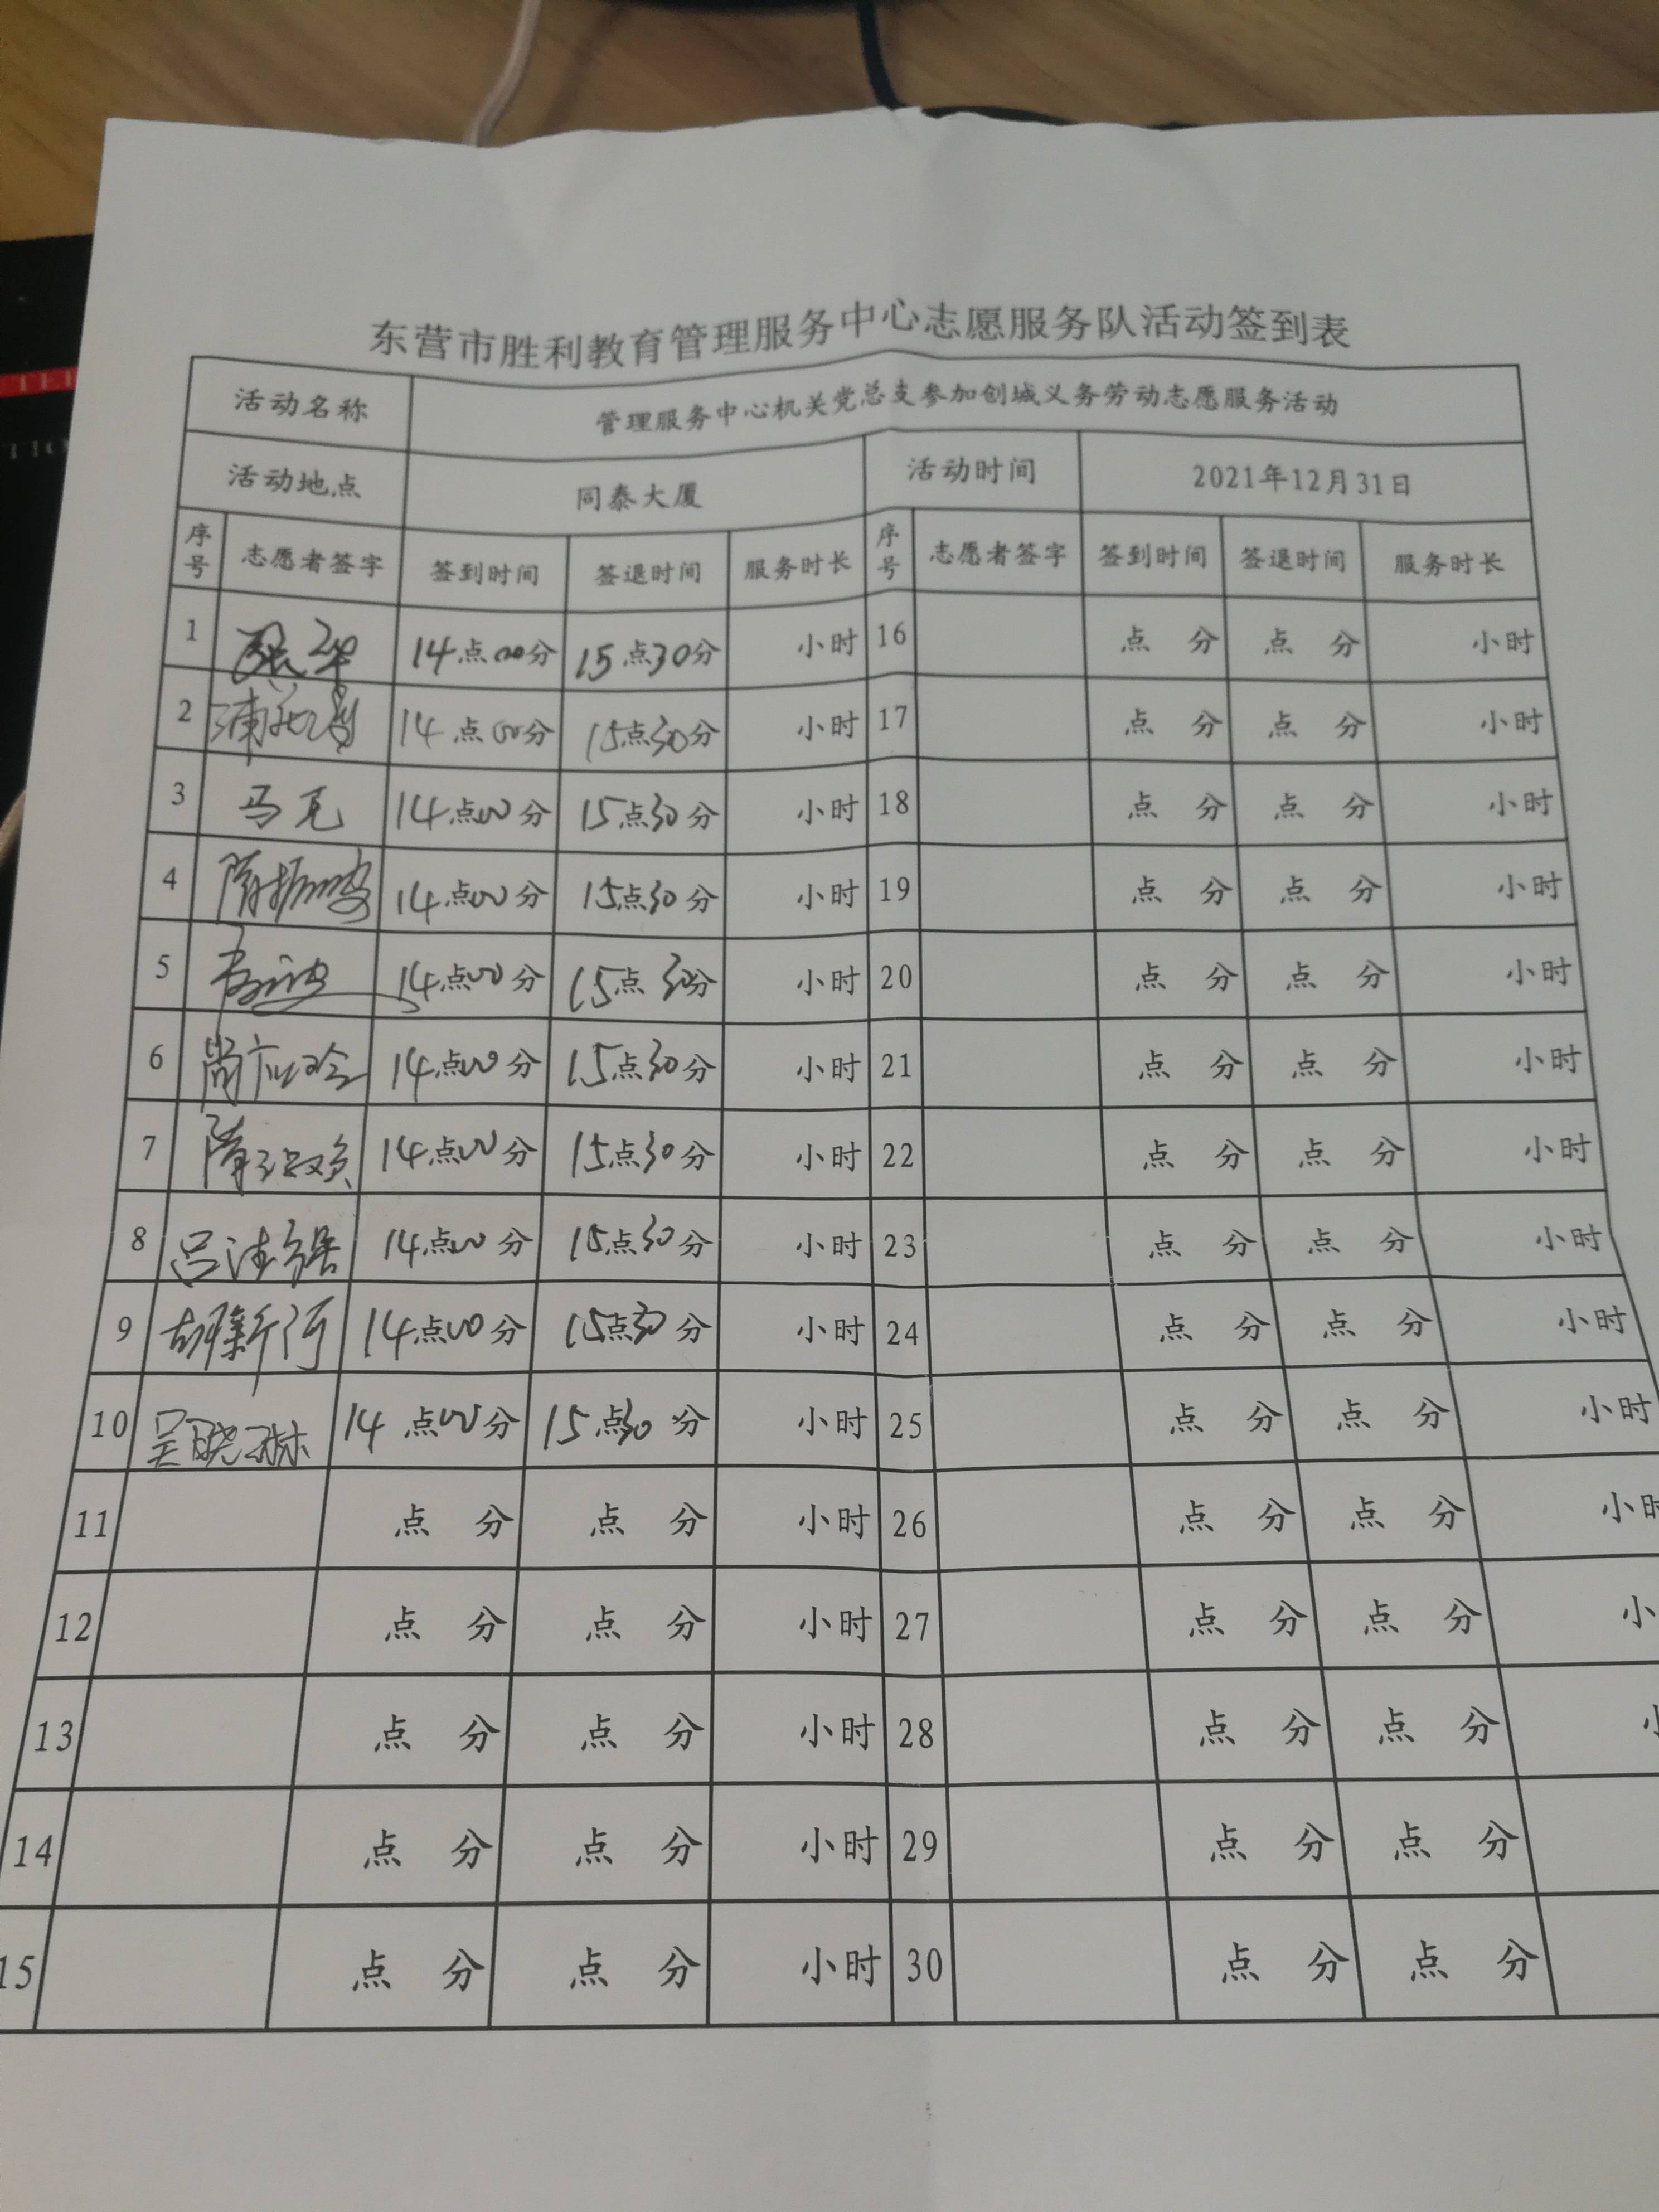 东营市胜利教育管理服务中心志愿服务队活动签到表
活动名称 管理服务中心机关党总支参加创城义务劳动志愿服务活动
活动地点 同泰大厦 活动时间 2021年12月31日
序号 志愿者签字 签到时间 签退时间 服务时长 序号 志愿者签字 签到时间 签退时间 服务时长
1 14点00分 15点30分 小时 16 点 分 点 分 小时
2 14点00分 15点30分 小时 17 点 分 点 分 小时
3 马 14点00分 15点30分 小时 18 点 分 点 分 小时
4 隋振波 14点00分 15点30分 小时 19 点 分 点 分 小时
5 14点00分 15点30分 小时 20 点 分 点 分 小时
6 尚 14点00分 15点30分 小时 21 点 分 点 分 小时
7 隋 14点00分 15点30分 小时 22 点 分 点 分 小时
8 吕 14点00分 15点30分 小时 23 点 分 点 分 小时
9 胡新河 14点00分 15点30分 小时 24 点 分 点 分 小时
10 吴晓琳 14点00分 15点30分 小时 25 点 分 点 分 小时
11 点 分 点 分 小时 26 点 分 点 分 小时
12 点 分 点 分 小时 27 点 分 点 分 小
13 点 分 点 分 小时 28 点 分 点 分
14 点 分 点 分 小时 29 点 分 点 分
15 点 分 点 分 小时 30 点 分 点 分